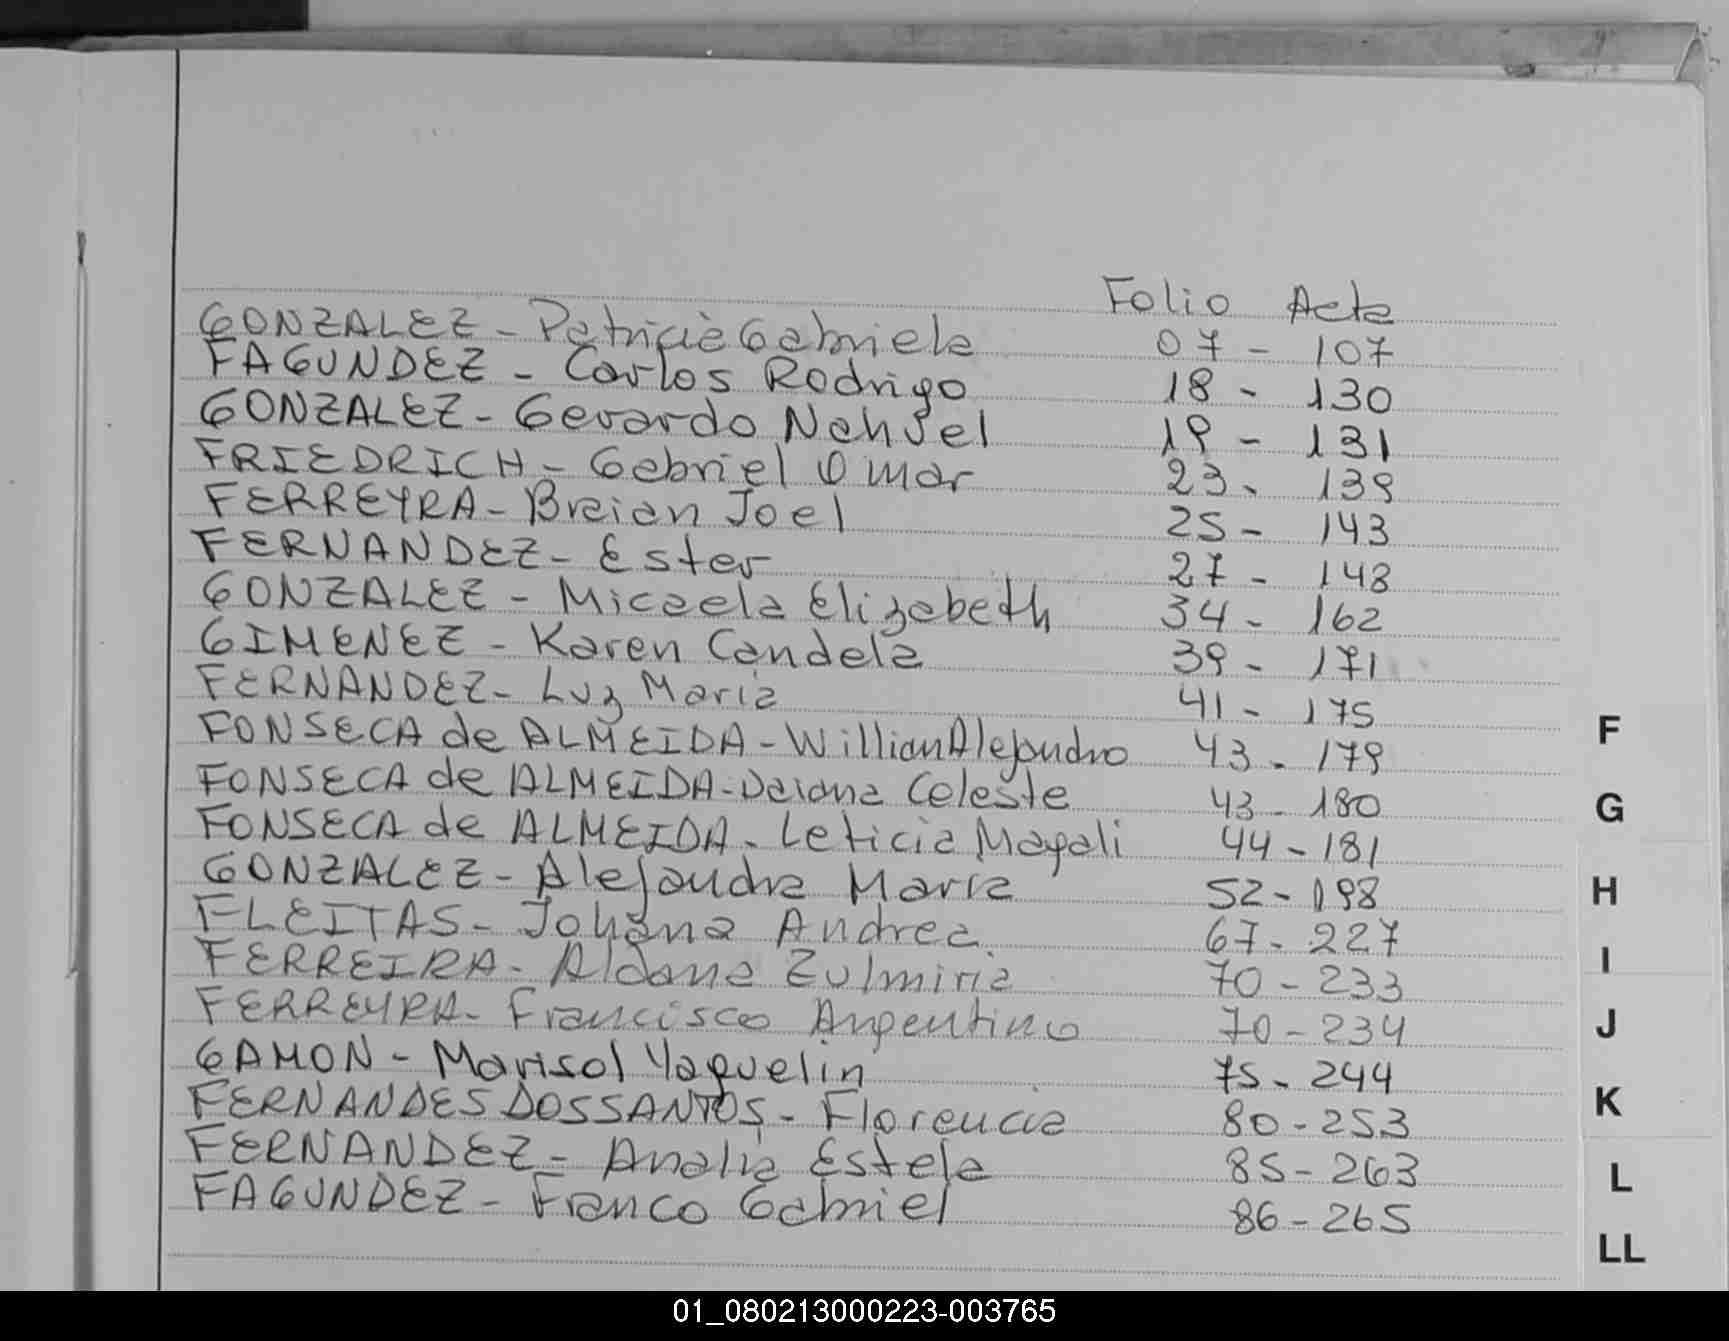 Folio Acta
GONZALEZ - Patricia Gabriela 07 - 107
FAGUNDEZ - Carlos Rodrigo 18 - 130
GONZALEZ - Gerardo Nahuel 19 - 131
FRIEDRICH - Gabriel Omar 23 - 139
FERREYRA - Breian Joel 25 - 143
FERNANDEZ - Ester 27 - 148
GONZALEZ - Micaela Elizabeth 34 - 162
GIMENEZ - Karen Candela 39 - 171
FERNANDEZ - Luz Maria 41 - 175
FONSECA de ALMEIDA - Willian Alejandro 43 - 179
FONSECA de ALMEIDA - Daiana Celeste 43 - 180
FONSECA de ALMEIDA - Leticia Magali 44 - 181
GONZALEZ - Alejandra Maria 52 - 198
FLEITAS - Johana Andrea 67 - 227
FERREIRA - Aldana Zulmiria 70 - 233
FERREYRA - Francisco Argentino 70 - 234
GAMON - Marisol Yaquelin 75 - 244
FERNANDES DOSSANTOS - Florencia 80 - 253
FERNANDEZ - Analia Estela 85 - 263
FAGUNDEZ - Franco Gabriel 86 - 265
F
G
H
I
J
K
L
LL
01_080213000223-003765